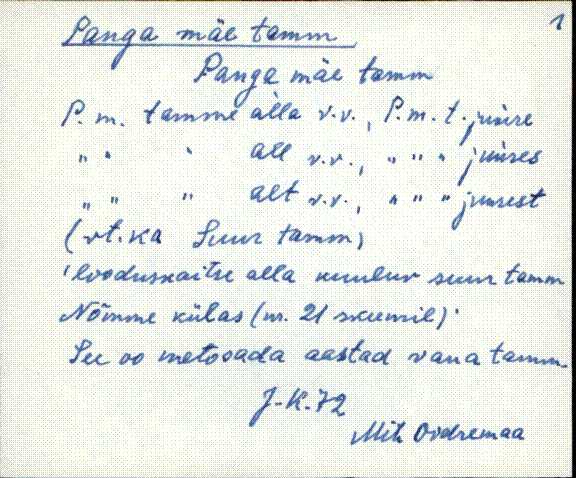 1
Panga mäe tamm
Panga mäe tamm
P. m. tamme alla v.v., P. m. t. juure
" " " all v.v., " " " juures
" " " alt v.v., " " " juurest
(vt. ka Suur tamm)
'looduskaitse alla kuuluv suur tamm
Nõmme külas (nr. 21 skeemil)'
See oo metosada aastad vana tamm.
J-K. 72
Mih